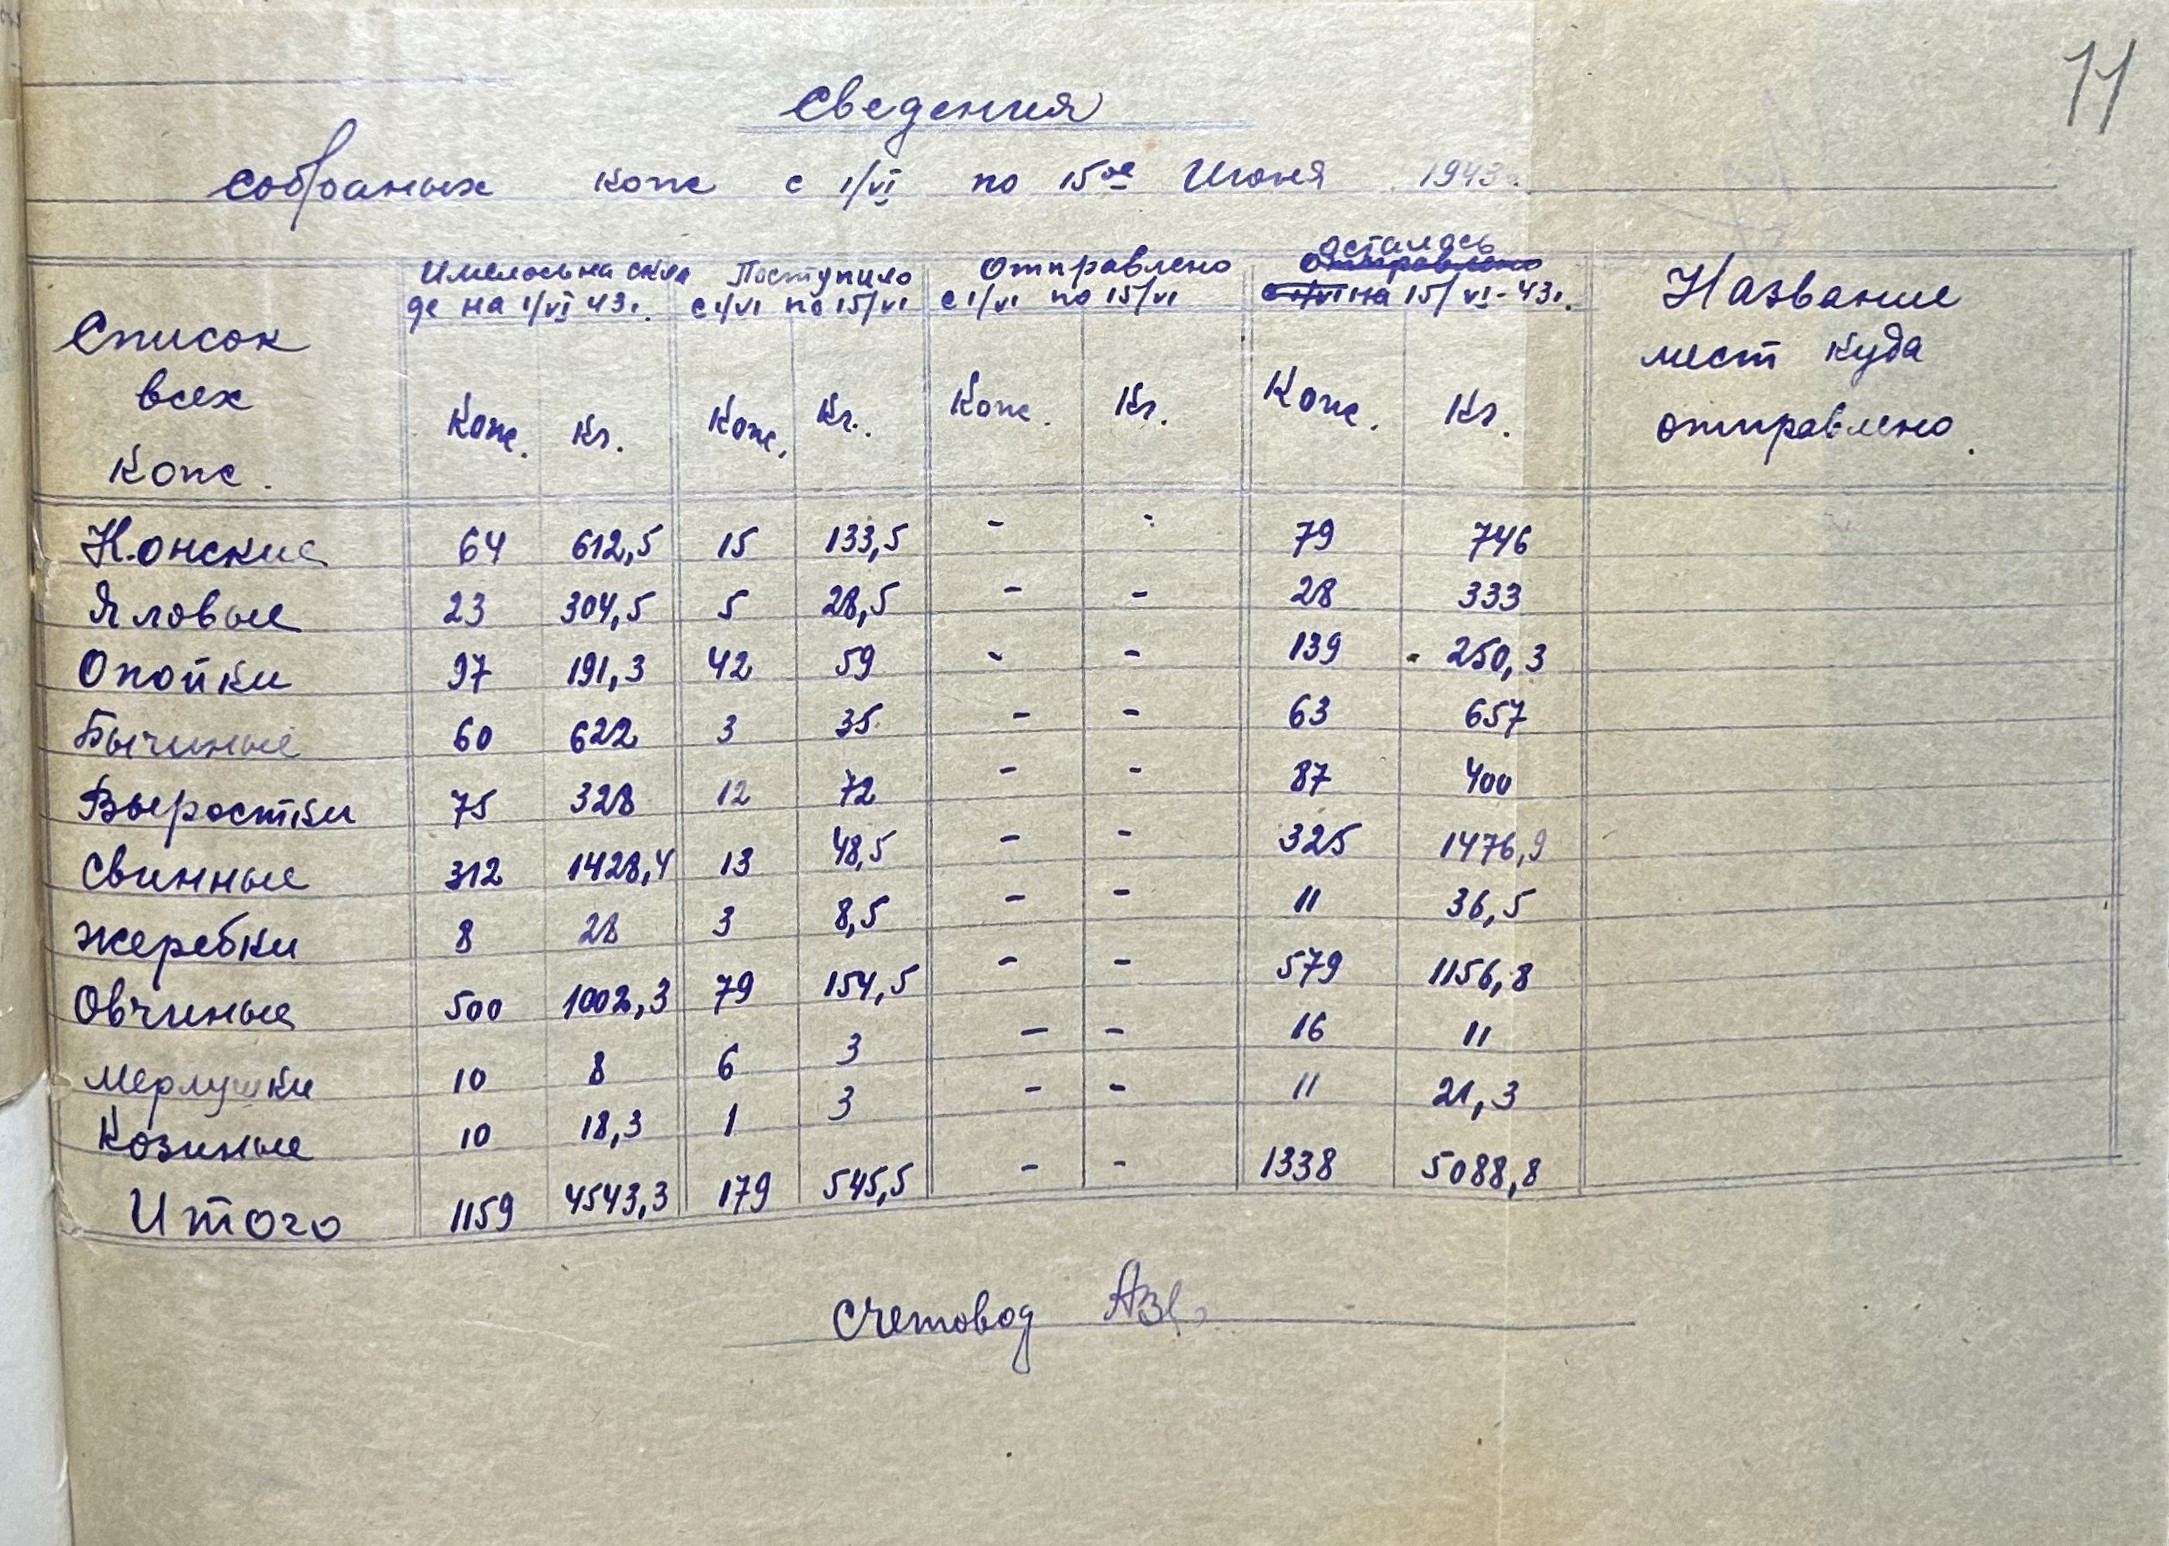 11
Сведения
собраных кож с 1/VI по 15ое Июня 1943г.
Список всех Кож.
Имелось на скла де на 1/VI 43г.
Поступило с 1/VI по 15/VI
Отправлено с 1/VI по 15/VI
осталось на 15/VI-43г.
Название мест куда отправлено.
Кож. Кг. Кож. Кг. Кож. Кг. Кож. Кг.
Конские 64 612,5 15 133,5 - - 79 746
Яловые 23 304,5 5 28,5 - - 28 333
Опойки 97 191,3 42 59 - - 139 250,3
Бычиные 60 622 3 35 - - 63 657
Выростки 75 328 12 72 - - 87 400
Свинные 312 1428,4 13 48,5 - - 325 1476,9
Жеребки 8 28 3 8,5 - - 11 36,5
Овчиные 500 1002,3 79 154,5 - - 579 1156,8
Мерлушки 10 8 6 3 - - 16 11
Козиные 10 18,3 1 3 - - 11 21,3
Итого 1159 4543,3 179 545,5 - - 1338 5088,8
Счетовод